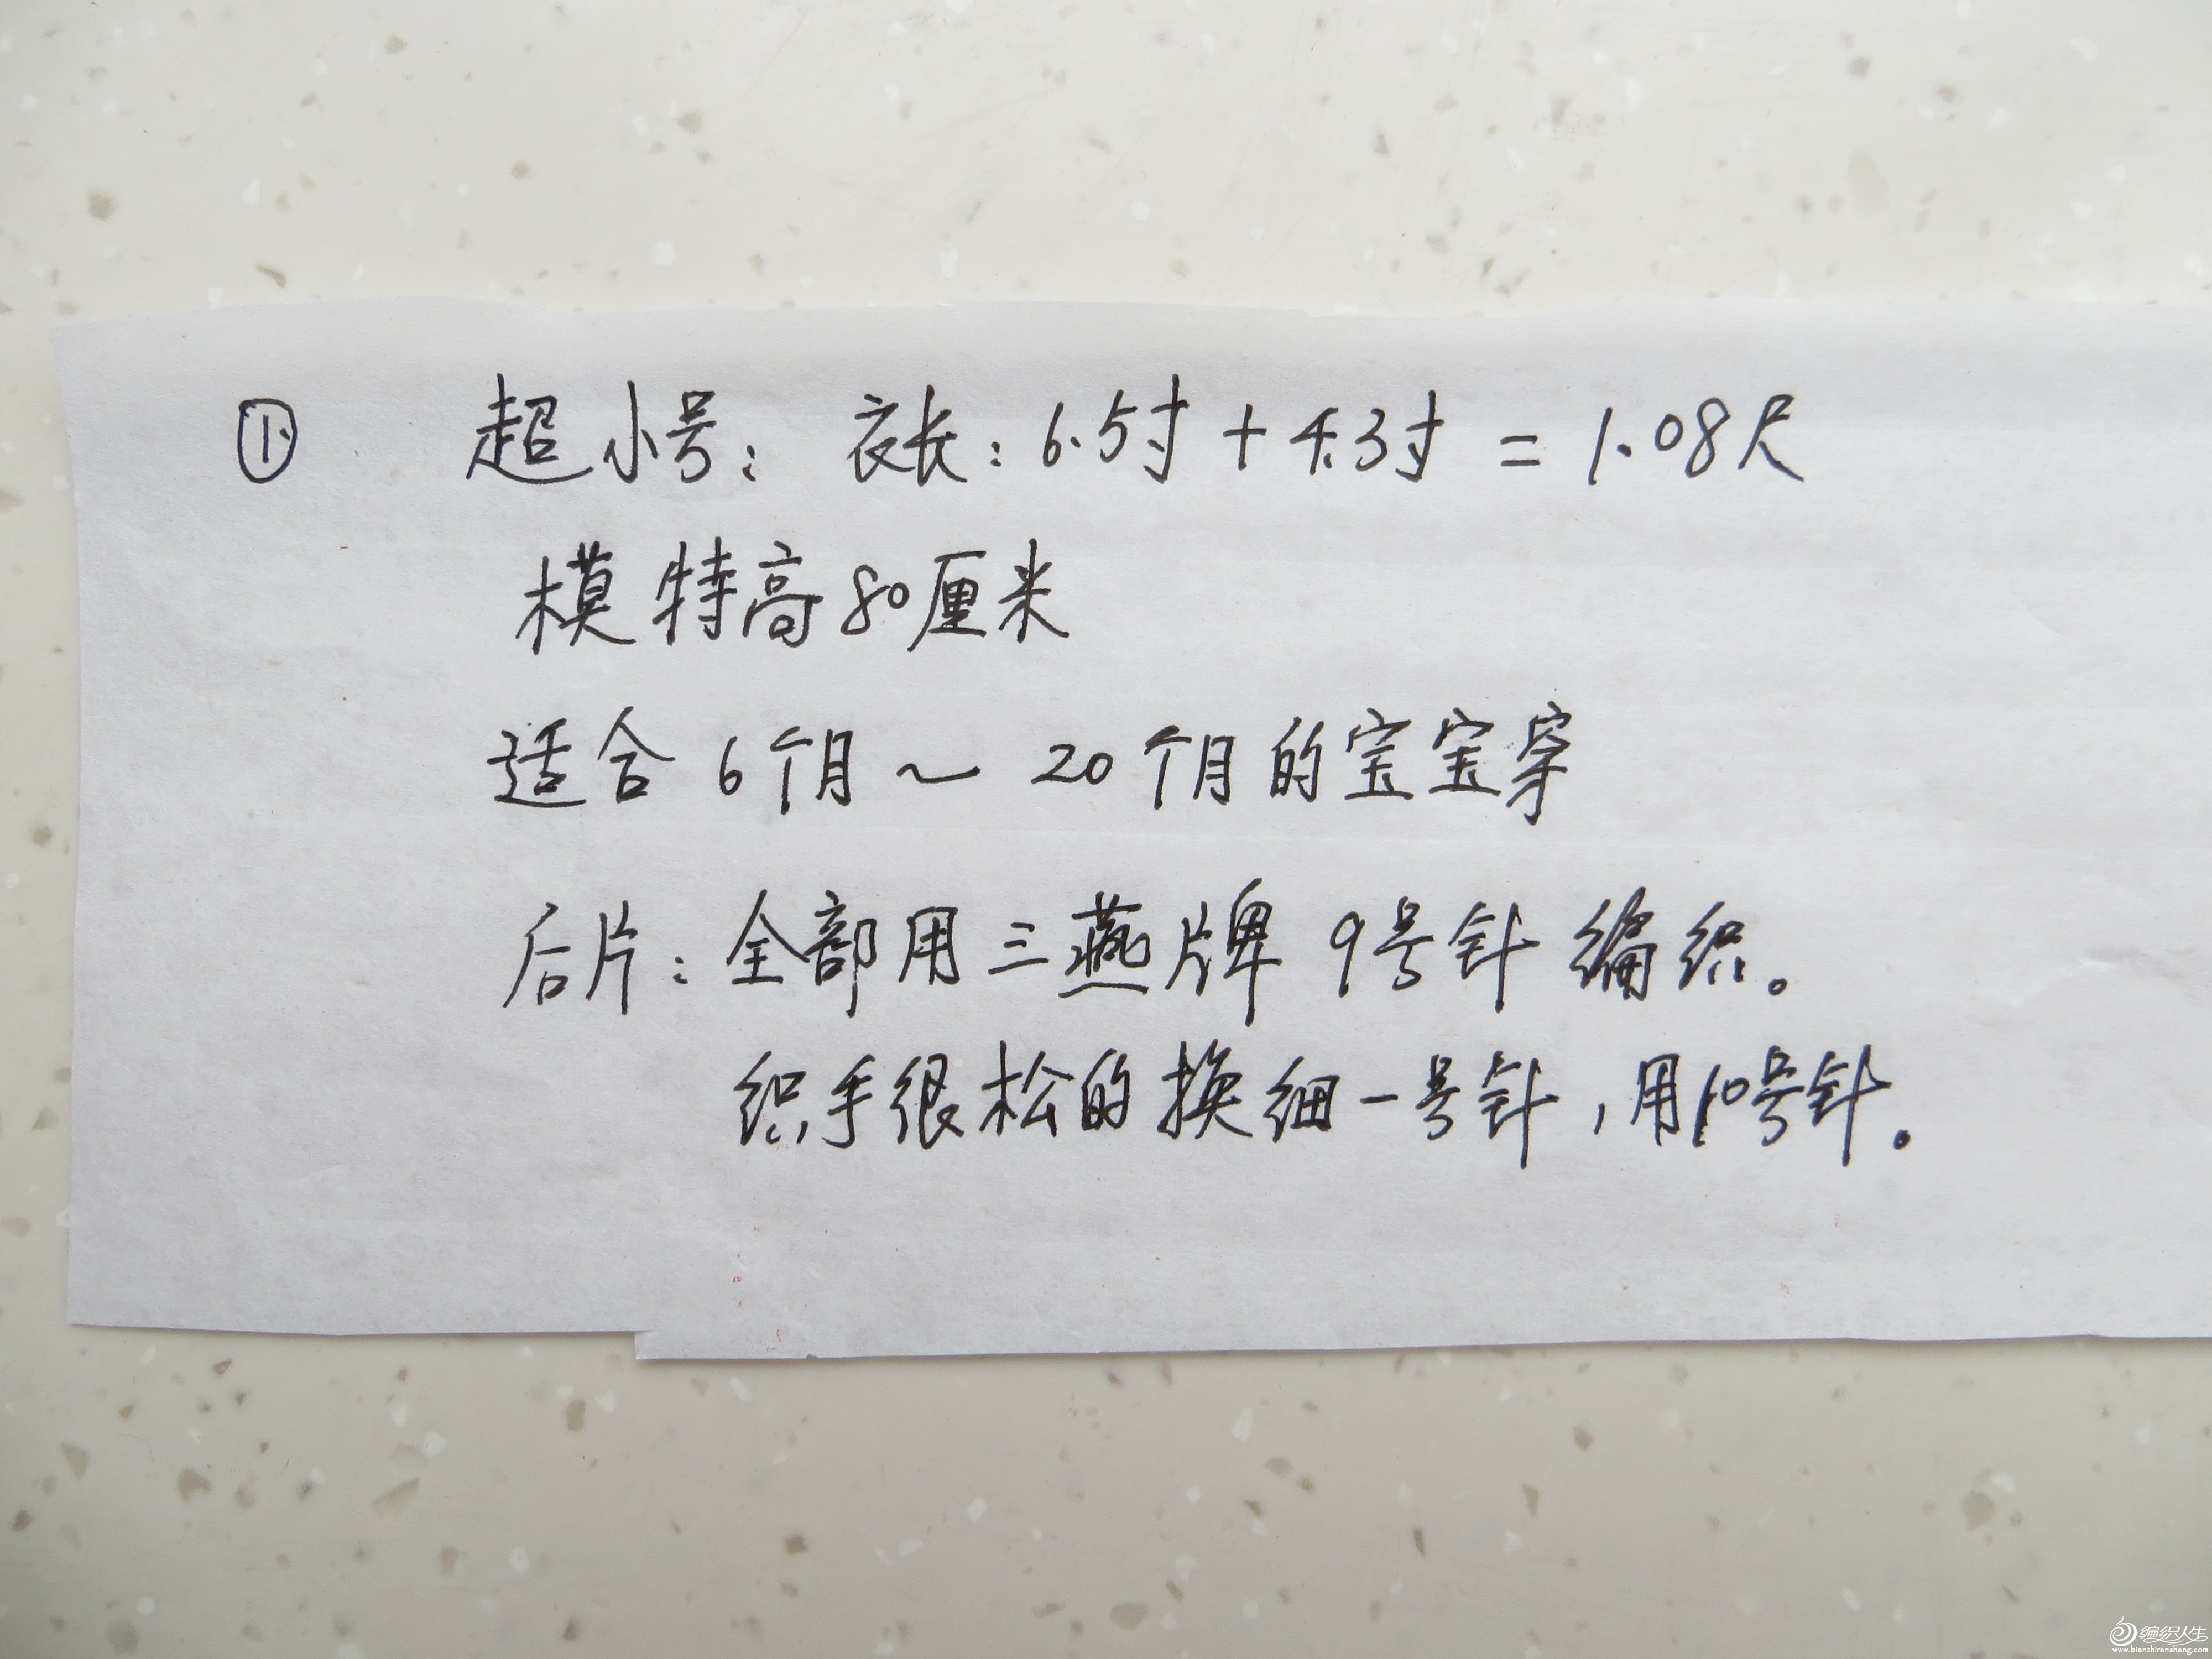 ① 超小号：衣长：6.5寸 + 4.3寸 = 1.08尺
模特高80厘米
适合6个月～20个月的宝宝穿
后片：全部用三燕牌 9号针编织。
织手很松的换细一号针，用10号针。
编织人生
www.bianzhirensheng.com